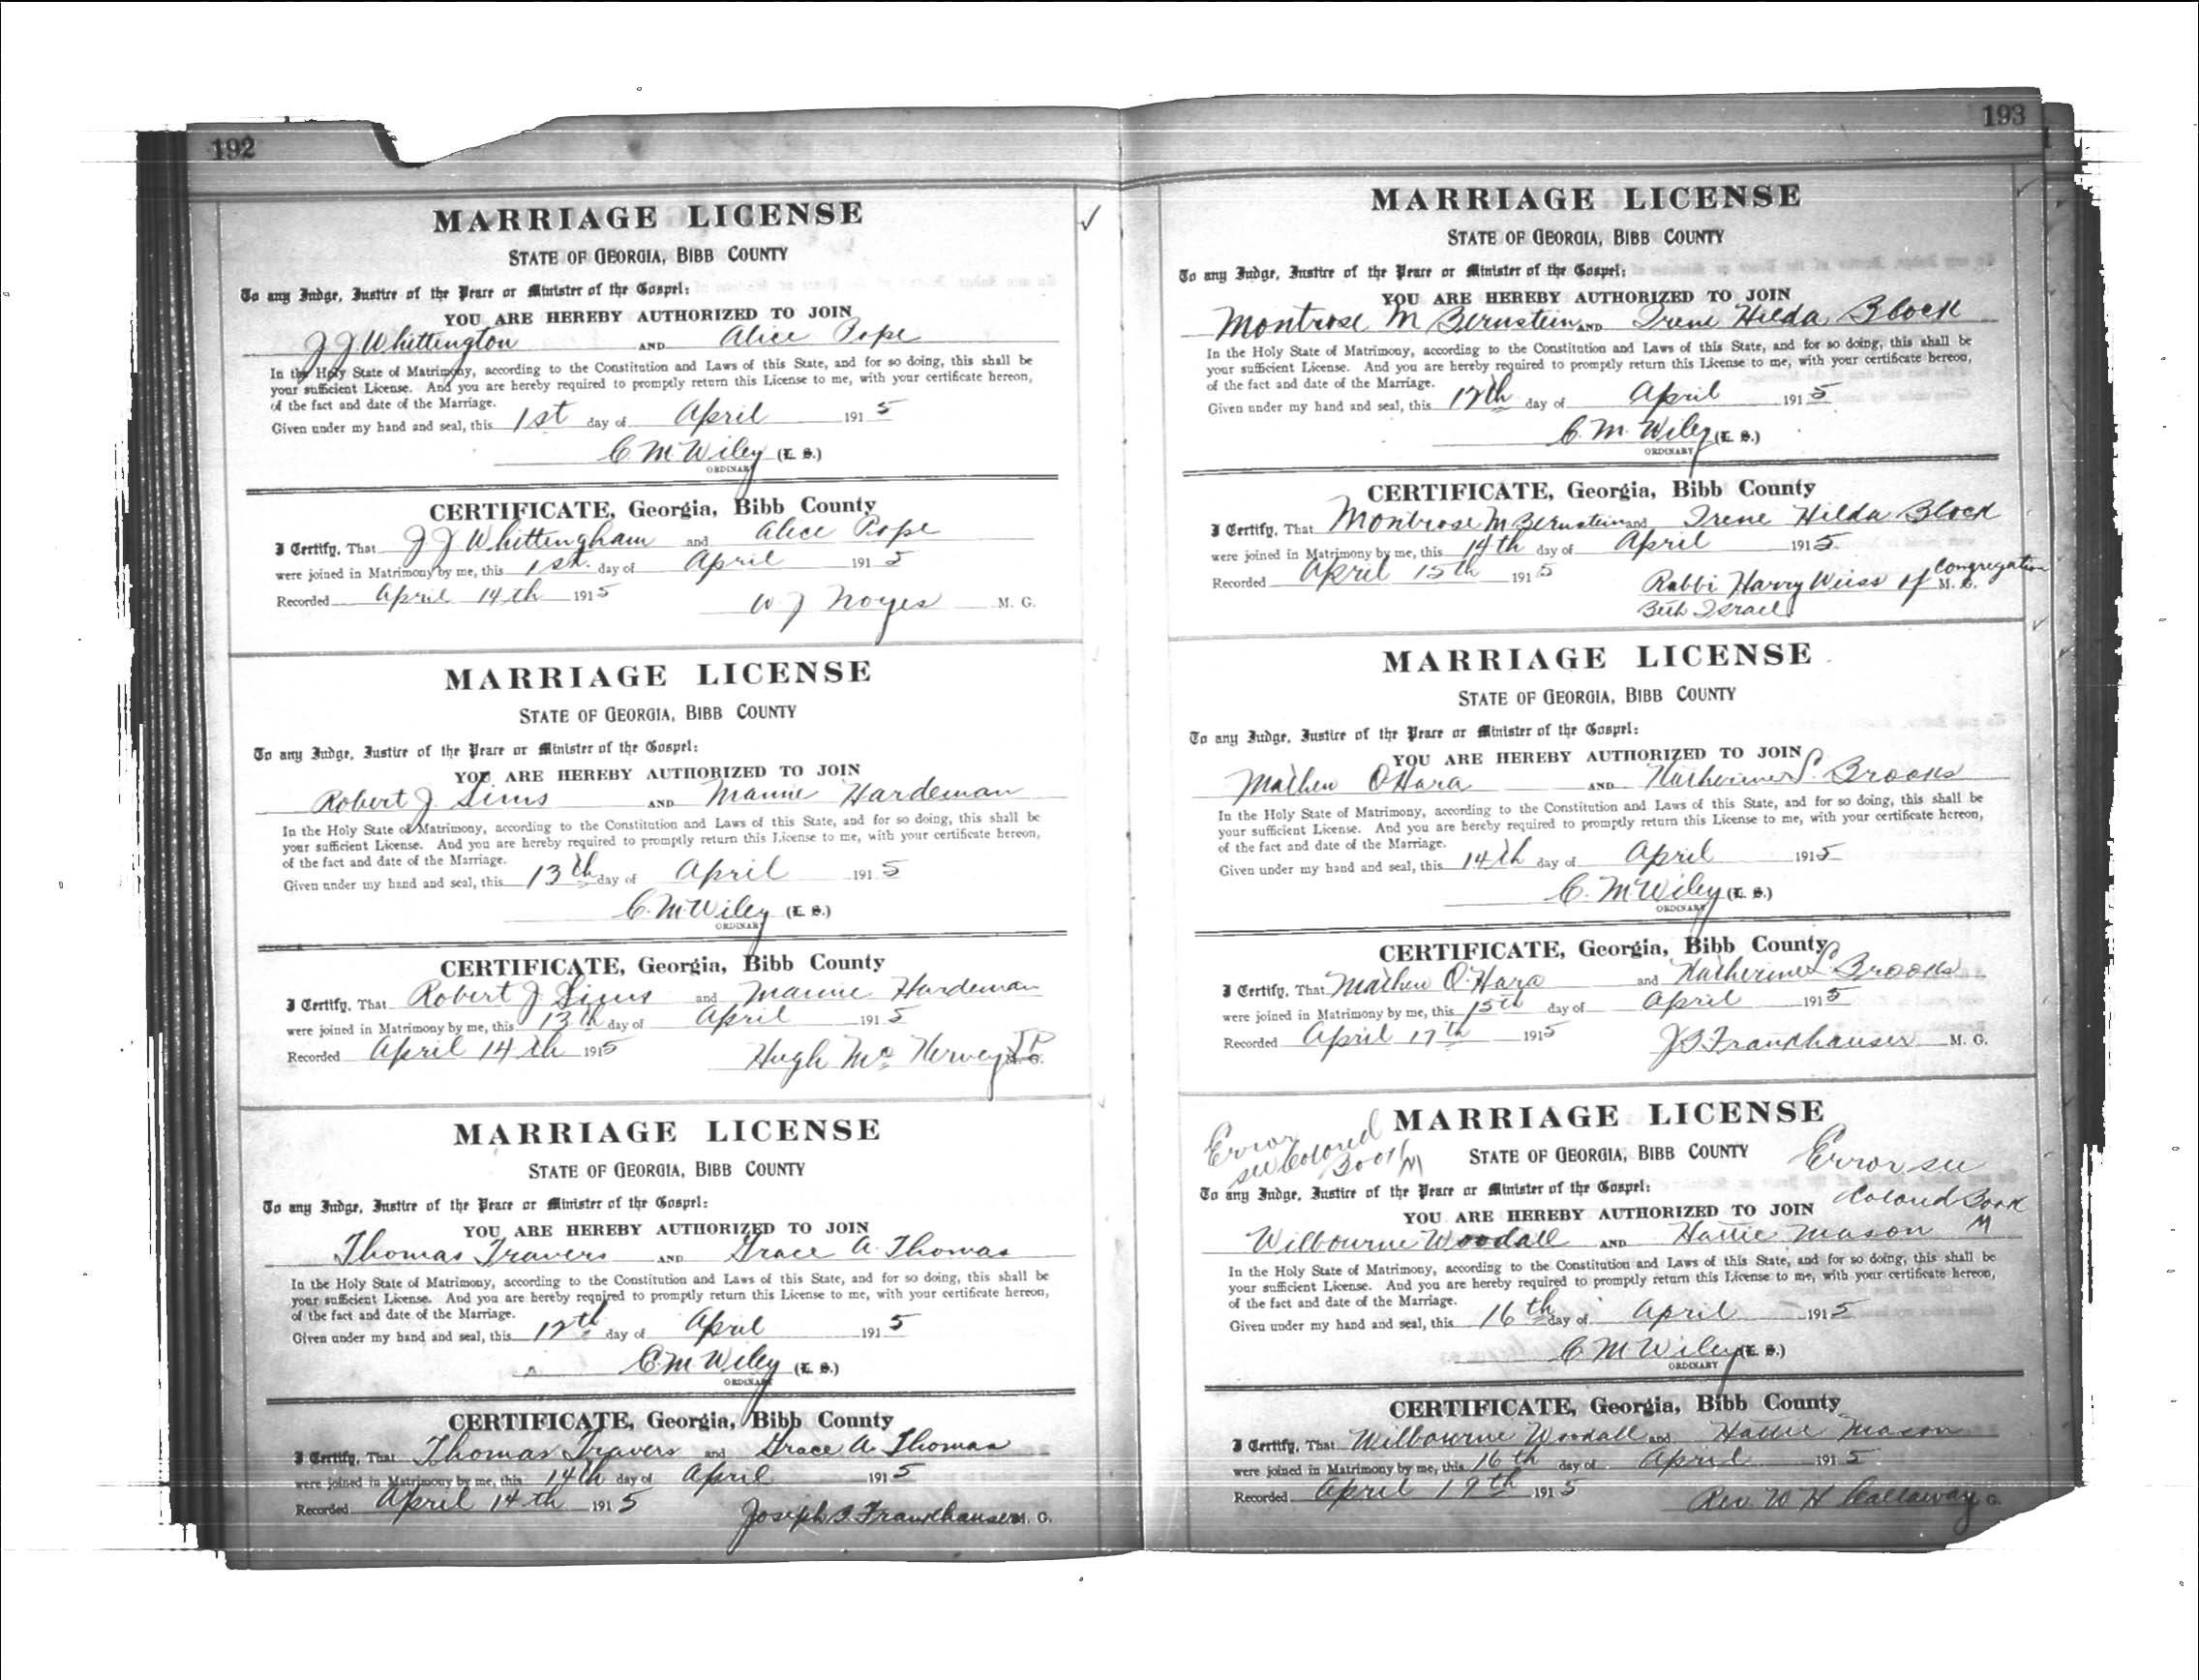 192
MARRIAGE LICENSE
STATE OF GEORGIA, BIBB COUNTY
To any Judge, Justice of the Peace or Minister of the Gospel:
YOU ARE HEREBY AUTHORIZED TO JOIN
J J Whittington AND Alice Pope
In the Holy State of Matrimony, according to the Constitution and Laws of this State, and for so doing, this shall be
your sufficient License. And you are hereby required to promptly return this License to me, with your certificate hereon,
of the fact and date of the Marriage.
Given under my hand and seal, this 1st day of April 1915
C. M. Wiley (L. S.)
ORDINARY
CERTIFICATE, Georgia, Bibb County
I Certify, That J J Whittingham and Alice Pope
were joined in Matrimony by me, this 1st day of April 1915
Recorded April 14th 1915 W J Noyes M. G.
MARRIAGE LICENSE
STATE OF GEORGIA, BIBB COUNTY
To any Judge, Justice of the Peace or Minister of the Gospel:
YOU ARE HEREBY AUTHORIZED TO JOIN
Robert J. Sims AND Mamie Hardeman
In the Holy State of Matrimony, according to the Constitution and Laws of this State, and for so doing, this shall be
your sufficient License. And you are hereby required to promptly return this License to me, with your certificate hereon,
of the fact and date of the Marriage.
Given under my hand and seal, this 13th day of April 1915
C. M. Wiley (L. S.)
ORDINARY
CERTIFICATE, Georgia, Bibb County
I Certify, That Robert J Sims and Mamie Hardeman
were joined in Matrimony by me, this 13th day of April 1915
Recorded April 14th 1915 Hugh Mc Kervey J P M. G.
MARRIAGE LICENSE
STATE OF GEORGIA, BIBB COUNTY
To any Judge, Justice of the Peace or Minister of the Gospel:
YOU ARE HEREBY AUTHORIZED TO JOIN
Thomas Travers AND Grace A. Thomas
In the Holy State of Matrimony, according to the Constitution and Laws of this State, and for so doing, this shall be
your sufficient License. And you are hereby required to promptly return this License to me, with your certificate hereon,
of the fact and date of the Marriage.
Given under my hand and seal, this 12th day of April 1915
C. M Wiley (L. S.)
ORDINARY
CERTIFICATE, Georgia, Bibb County
I Certify, That Thomas Travers and Grace A. Thomas
were joined in Matrimony by me, this 14th day of April 1915
Recorded April 14th 1915 Joseph S. Frankhauser M. G.
193
MARRIAGE LICENSE
STATE OF GEORGIA, BIBB COUNTY
To any Judge, Justice of the Peace or Minister of the Gospel:
YOU ARE HEREBY AUTHORIZED TO JOIN
Montrose M Bernstein AND Irene Hilda Block
In the Holy State of Matrimony, according to the Constitution and Laws of this State, and for so doing, this shall be
your sufficient License. And you are hereby required to promptly return this License to me, with your certificate hereon,
of the fact and date of the Marriage.
Given under my hand and seal, this 12th day of April 1915
C. M. Wiley (L. S.)
ORDINARY
CERTIFICATE, Georgia, Bibb County
I Certify, That Montrose M Bernstein and Irene Hilda Block
were joined in Matrimony by me, this 14th day of April 1915
Recorded April 15th 1915 Rabbi Harry Weiss of Congregation M. G.
Beth Israel
MARRIAGE LICENSE
STATE OF GEORGIA, BIBB COUNTY
To any Judge, Justice of the Peace or Minister of the Gospel:
YOU ARE HEREBY AUTHORIZED TO JOIN
Mathew O'Hara AND Katherine S. Brooks
In the Holy State of Matrimony, according to the Constitution and Laws of this State, and for so doing, this shall be
your sufficient License. And you are hereby required to promptly return this License to me, with your certificate hereon,
of the fact and date of the Marriage.
Given under my hand and seal, this 14th day of April 1915
C. M. Wiley (L. S.)
ORDINARY
CERTIFICATE, Georgia, Bibb County
I Certify, That Mathew O'Hara and Katherine S. Brooks
were joined in Matrimony by me, this 15th day of April 1915
Recorded April 17th 1915 J S Frankhauser M. G.
MARRIAGE LICENSE
Error see Colored Book M
STATE OF GEORGIA, BIBB COUNTY
Error see Colored Book M
To any Judge, Justice of the Peace or Minister of the Gospel:
YOU ARE HEREBY AUTHORIZED TO JOIN
Wilbourne Woodall AND Hattie Mason
In the Holy State of Matrimony, according to the Constitution and Laws of this State, and for so doing, this shall be
your sufficient License. And you are hereby required to promptly return this License to me, with your certificate hereon,
of the fact and date of the Marriage.
Given under my hand and seal, this 16th day of April 1915
C M Wiley (L. S.)
ORDINARY
CERTIFICATE, Georgia, Bibb County
I Certify, That Wilbourne Woodall and Hattie Mason
were joined in Matrimony by me, this 16th day of April 1915
Recorded April 19th 1915 Rev W H Callaway G.